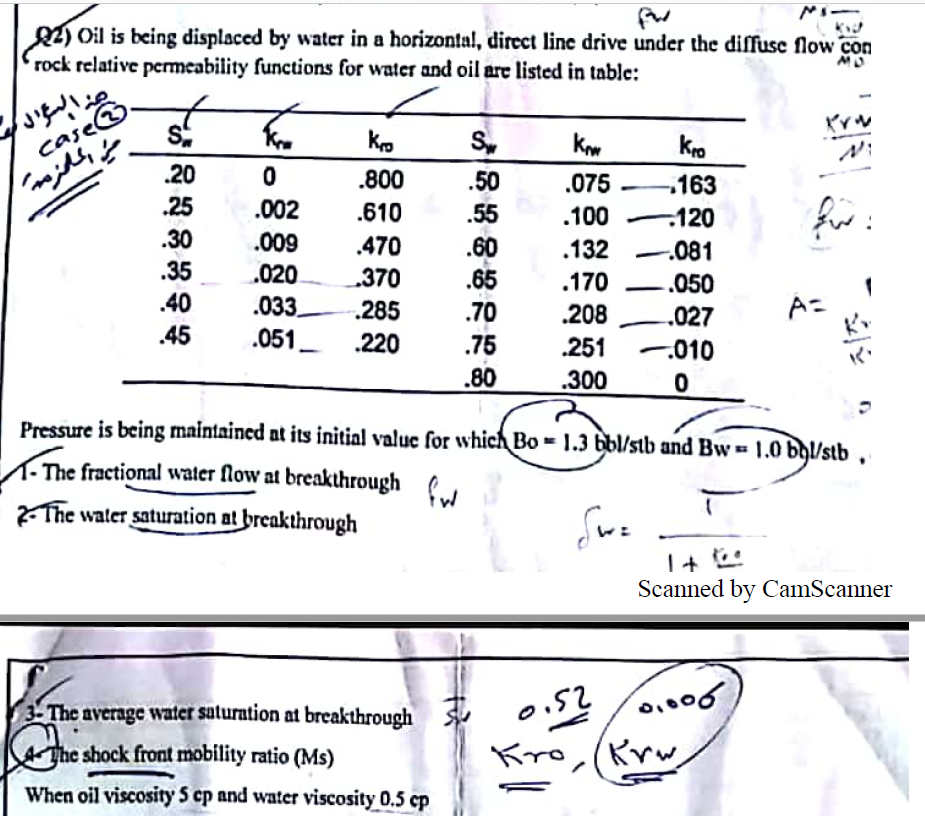 fw
Q2) Oil is being displaced by water in a horizontal, direct line drive under the diffuse flow con
rock relative permeability functions for water and oil are listed in table:
case 2
Sw krw kro Sw krw kro
.20 0 .800 .50 .075 .163
.25 .002 .610 .55 .100 .120
.30 .009 .470 .60 .132 .081
.35 .020 .370 .65 .170 .050
.40 .033 .285 .70 .208 .027
.45 .051 .220 .75 .251 .010
.80 .300 0
Krw
fw =
A=
Pressure is being maintained at its initial value for which Bo = 1.3 bbl/stb and Bw = 1.0 bbl/stb .
1- The fractional water flow at breakthrough fw
2- The water saturation at breakthrough
fw = 1
1 +
Scanned by CamScanner
3- The average water saturation at breakthrough Sw 0.52 0.006
4- The shock front mobility ratio (Ms) Kro, Krw
When oil viscosity 5 cp and water viscosity 0.5 cp